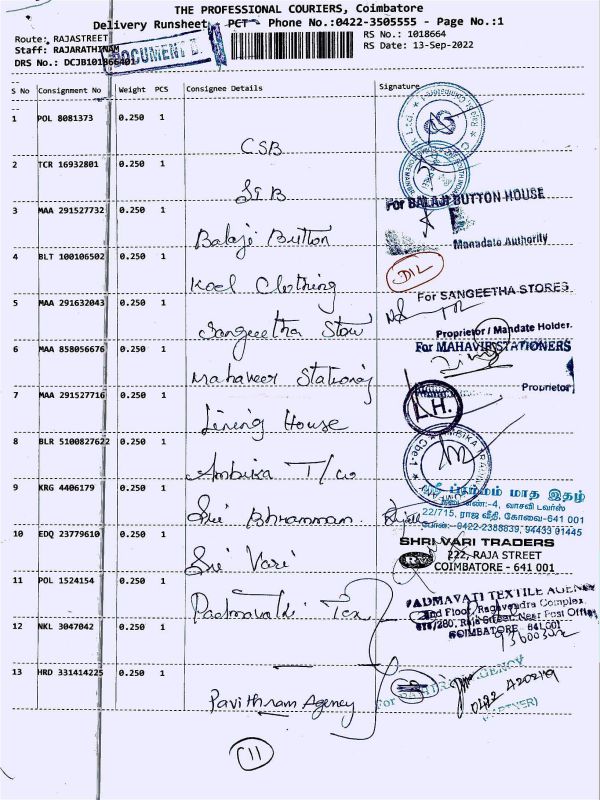 THE PROFESSIONAL COURIERS, Coimbatore
Delivery Runsheet PCT - Phone No.:0422-3505555 - Page No.:1
Route: RAJASTREET
RS No.: 1018664
Staff: RAJARATHINAM
RS Date: 13-Sep-2022
DRS No.: DCJB101866401
DOCUMENT
S No Consignment No Weight PCS Consignee Details Signature
1 POL 8081373 0.250 1
CSB
2 TCR 16932801 0.250 1
SIB
3 MAA 291527732 0.250 1
For BALAJI BUTTON HOUSE
Balaji Button
Manadate Authority
4 BLT 100106502 0.250 1
Koel Clothing
For SANGEETHA STORES
5 MAA 291632043 0.250 1
Sangeetha Stow
Proprietor / Mandate Holder.
6 MAA 858056676 0.250 1
For MAHAVIR STATIONERS
Mahaveer Stationaj
Proprietor
7 MAA 291527716 0.250 1
L.H.
Lining House
8 BLR 5100827622 0.250 1
Ambika T/co
9 KRG 4406179 0.250 1
மாத இதழ்
22/715, ராஜ வீதி, கோவை-641 001
Sri Bhramman
போன்:-0422-2388839, 94433 01445
10 EDQ 23779610 0.250 1
SHRI VARI TRADERS
222, RAJA STREET
COIMBATORE - 641 001
Sri Vari
11 POL 1524154 0.250 1
PADMAVATI TEXTILE AGENCY
2nd Floor, Raghavendra Complex,
Padmavathi Tex
Raja Street, Near Post Office
COIMBATORE - 641001
12 NKL 3047042 0.250 1
13 HRD 331414225 0.250 1
AGENCY
Pavithram Agency
0422 4202119
(PARTNER)
11